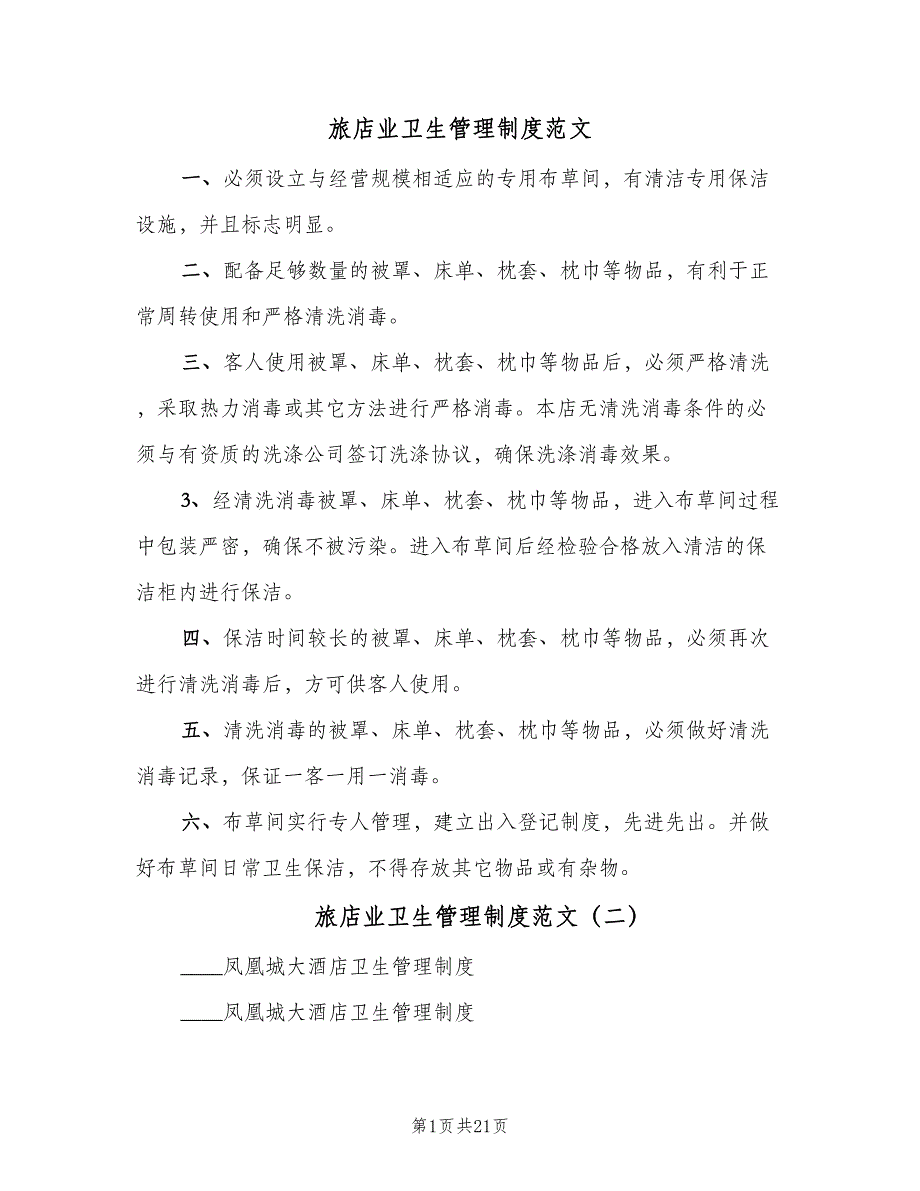 旅店业卫生管理制度范文
一、必须设立与经营规模相适应的专用布草间，有清洁专用保洁
设施，并且标志明显。
二、配备足够数量的被罩、床单、枕套、枕巾等物品，有利于正
常周转使用和严格清洗消毒。
三、客人使用被罩、床单、枕套、枕巾等物品后，必须严格清洗
，采取热力消毒或其它方法进行严格消毒。本店无清洗消毒条件的必
须与有资质的洗涤公司签订洗涤协议，确保洗涤消毒效果。
3、经清洗消毒被罩、床单、枕套、枕巾等物品，进入布草间过程
中包装严密，确保不被污染。进入布草间后经检验合格放入清洁的保
洁柜内进行保洁。
四、保洁时间较长的被罩、床单、枕套、枕巾等物品，必须再次
进行清洗消毒后，方可供客人使用。
五、清洗消毒的被罩、床单、枕套、枕巾等物品，必须做好清洗
消毒记录，保证一客一用一消毒。
六、布草间实行专人管理，建立出入登记制度，先进先出。并做
好布草间日常卫生保洁，不得存放其它物品或有杂物。
旅店业卫生管理制度范文（二）
____凤凰城大酒店卫生管理制度
____凤凰城大酒店卫生管理制度
第1页共21页